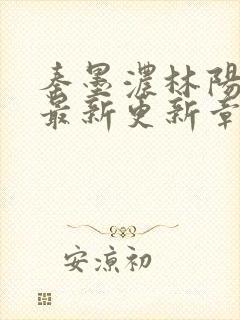 秦墨濃林陽
最新更新章
安涼初